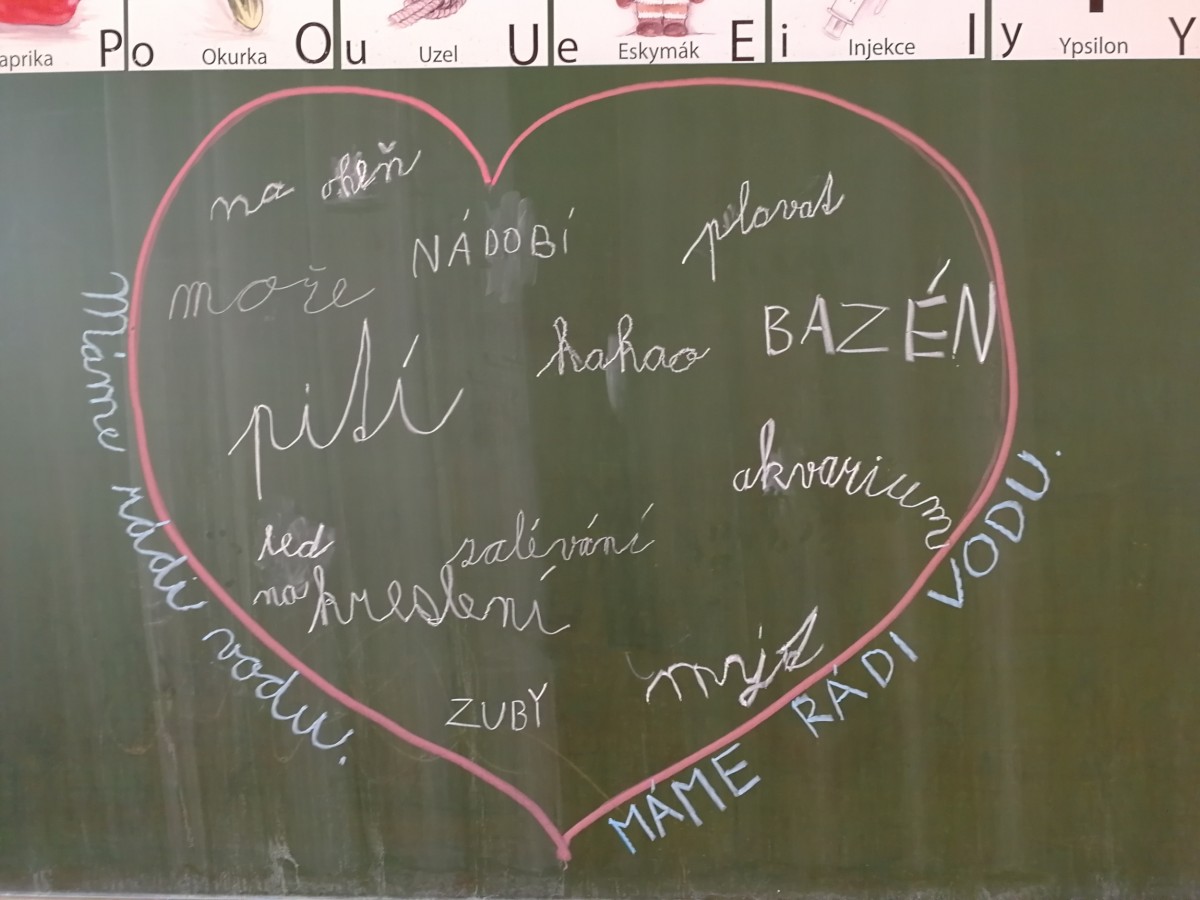 aprika P o Okurka O u Uzel U e Eskymák E i Injekce I y Ypsilon Y
na oheň
NÁDOBÍ
plavat
moře
BAZÉN
kakao
pití
akvarium
led
zalévání
na kreslení
mýt
ZUBY
Máme rádi vodu.
MÁME RÁDI VODU.